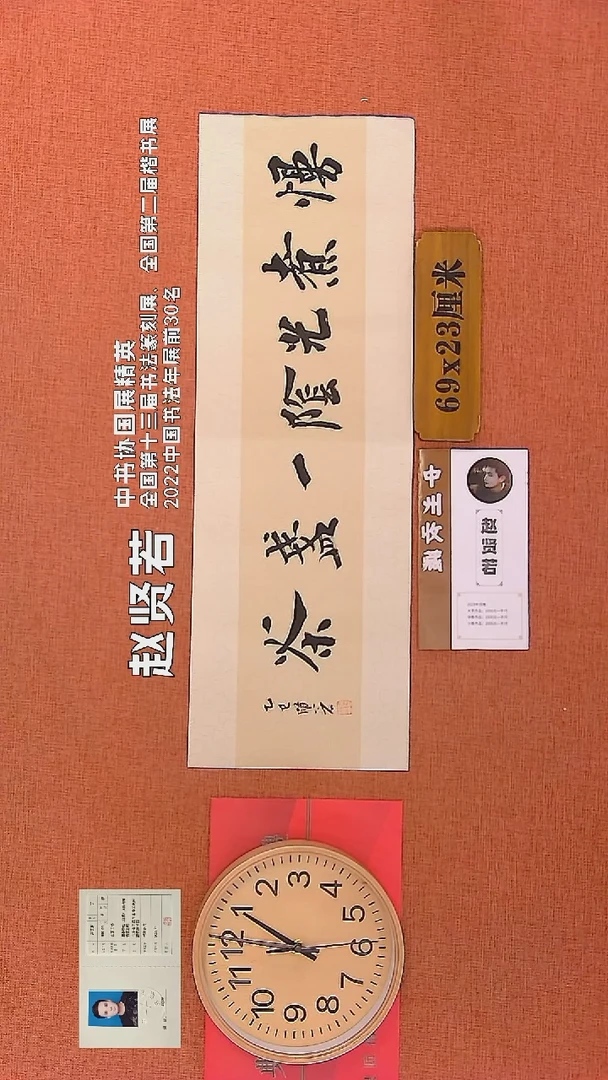 赵贤若
中书协国展精英
全国第十三届书法篆刻展、全国第二届楷书展
2022中国书法年展前30名
慢煮光陰一盏茶
乙巳贤若
69x23厘米
赵贤若
12
1
2
3
4
5
6
7
8
9
10
11